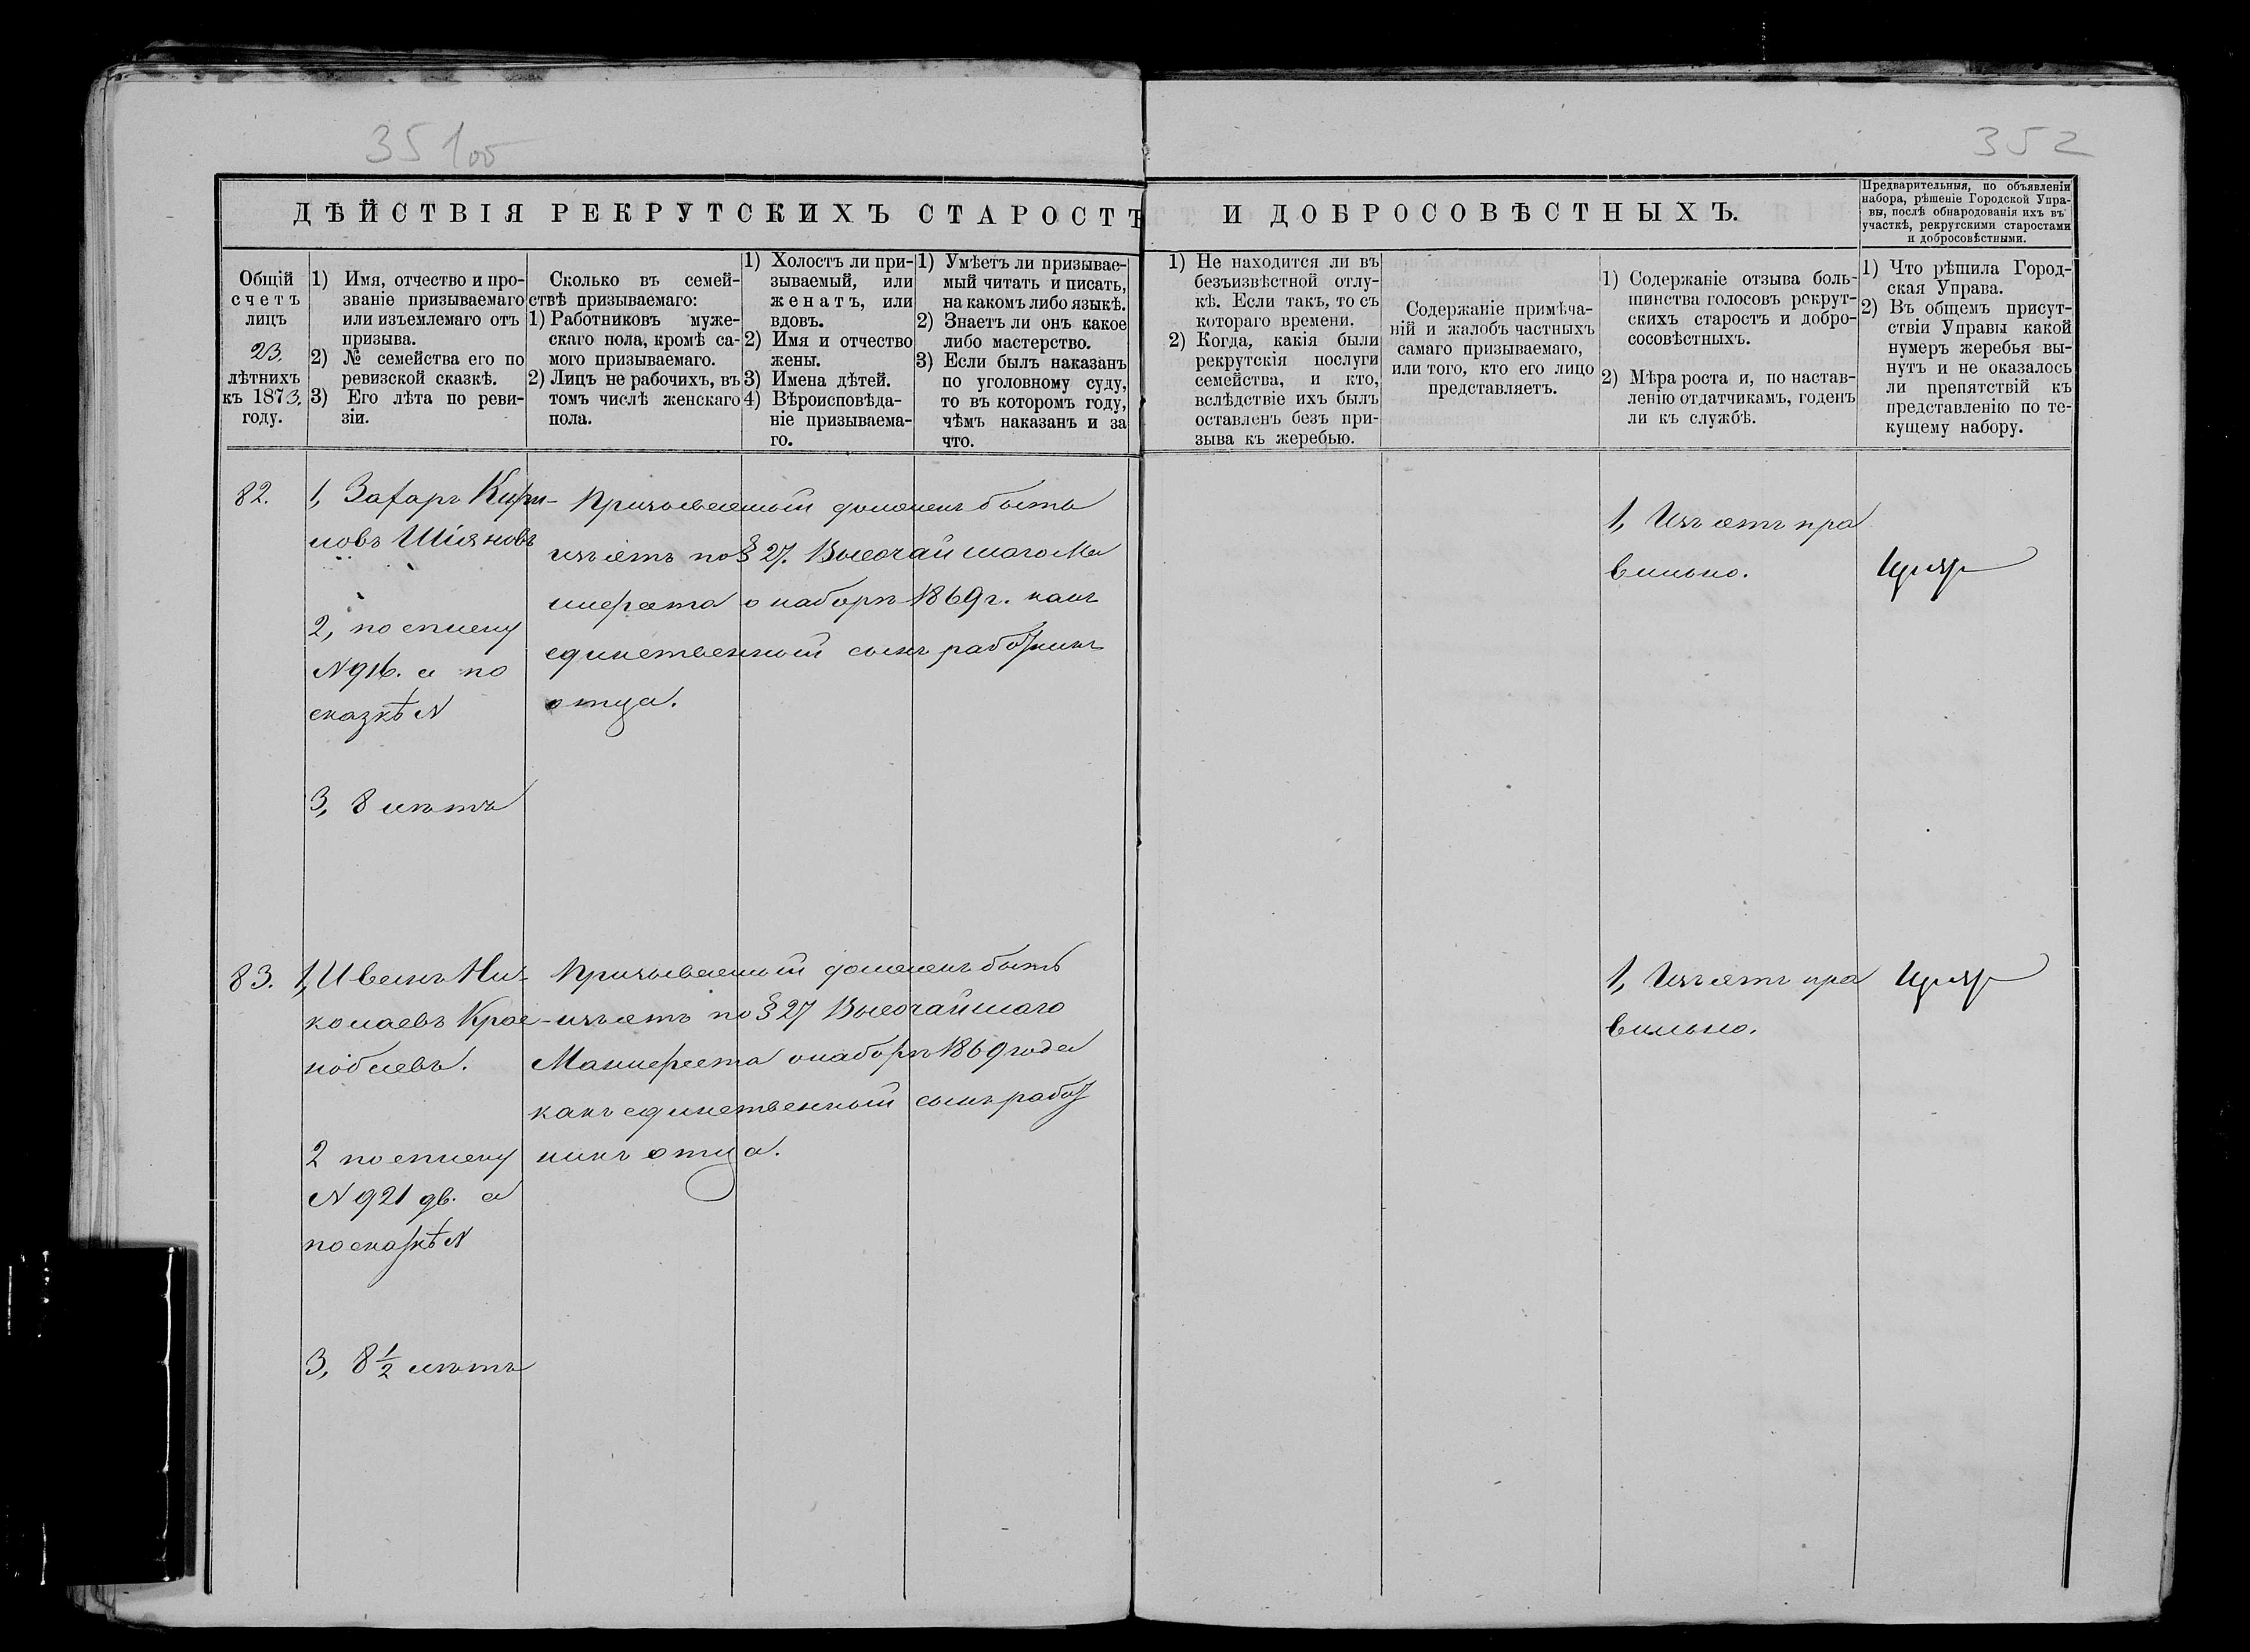 35 100
352
ДѢЙСТВІЯ РЕКРУТСКИХЪ СТАРОСТЪ И ДОБРОСОВѢСТНЫХЪ.
Предварительныя, по объявленіи
набора, рѣшеніе Городской Упра-
вы, послѣ обнародованія ихъ въ
участкѣ, рекрутскими старостами
и добросовѣстными.
Общій
счетъ
лицъ
23.
лѣтнихъ
къ 1873.
году.
1) Имя, отчество и про-
званіе призываемаго
или изъемлемаго отъ
призыва.
2) № семейства его по
ревизской сказкѣ.
3) Его лѣта по реви-
зіи.
Сколько въ семей-
ствѣ призываемаго:
1) Работниковъ муже-
скаго пола, кромѣ са-
мого призываемаго.
2) Лицъ не рабочихъ, въ
томъ числѣ женскаго
пола.
1) Холостъ ли при-
зываемый, или
женатъ, или
вдовъ.
2) Имя и отчество
жены.
3) Имена дѣтей.
4) Вѣроисповѣда-
ніе призываема-
го.
1) Умѣетъ ли призывае-
мый читать и писать,
на какомъ либо языкѣ.
2) Знаетъ ли онъ какое
либо мастерство.
3) Если былъ наказанъ
по уголовному суду,
то въ которомъ году,
чѣмъ наказанъ и за
что.
1) Не находится ли въ
безъизвѣстной отлу-
кѣ. Если такъ, то съ
котораго времени.
2) Когда, какія были
рекрутскія послуги
семейства, и кто,
вслѣдствіе ихъ былъ
оставленъ безъ при-
зыва къ жеребью.
Содержаніе примѣча-
ній и жалобъ частныхъ
самаго призываемаго,
или того, кто его лицо
представляетъ.
1) Содержаніе отзыва боль-
шинства голосовъ рекрут-
скихъ старостъ и добро-
сосовѣстныхъ.
2) Мѣра роста и, по настав-
ленію отдатчикамъ, годенъ
ли къ службѣ.
1) Что рѣшила Город-
ская Управа.
2) Въ общемъ присут-
ствіи Управы какой
нумеръ жеребья вы-
нутъ и не оказалось
ли препятствій къ
представленію по те-
кущему набору.
82.
1, Захаръ Кири-
ловъ Шіяновъ
2, по списку
N 916. а по
сказкѣ N
3, 8 лѣтъ
Призываемый долженъ быть
изъятъ по § 27. Высочайшаго Ма
нифеста о наборѣ 1869 г. какъ
единственный сынъ работникъ
отца.
1, Изъятъ пра
вильно.
83.
1, Иванъ Ни-
колаевъ Крас
нобаевъ.
2 по списку
N 921 дв. а
по сказкѣ N
3, 8 ½ лѣтъ
Призываемый долженъ быть
изъятъ по § 27 Высочайшаго
Манифеста о наборѣ 1869 года
какъ единственный сынъ работ
никъ отца.
1, Изъятъ пра
вильно.